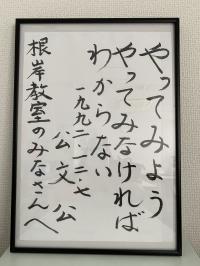 やってみよう
やってみなければ
わからない
一九九二・一二・七
公文 公
根岸教室のみなさんへ